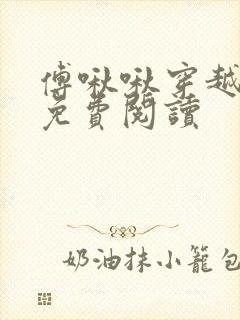 傅啾啾穿越
免費閱讀
奶油抹小籠包